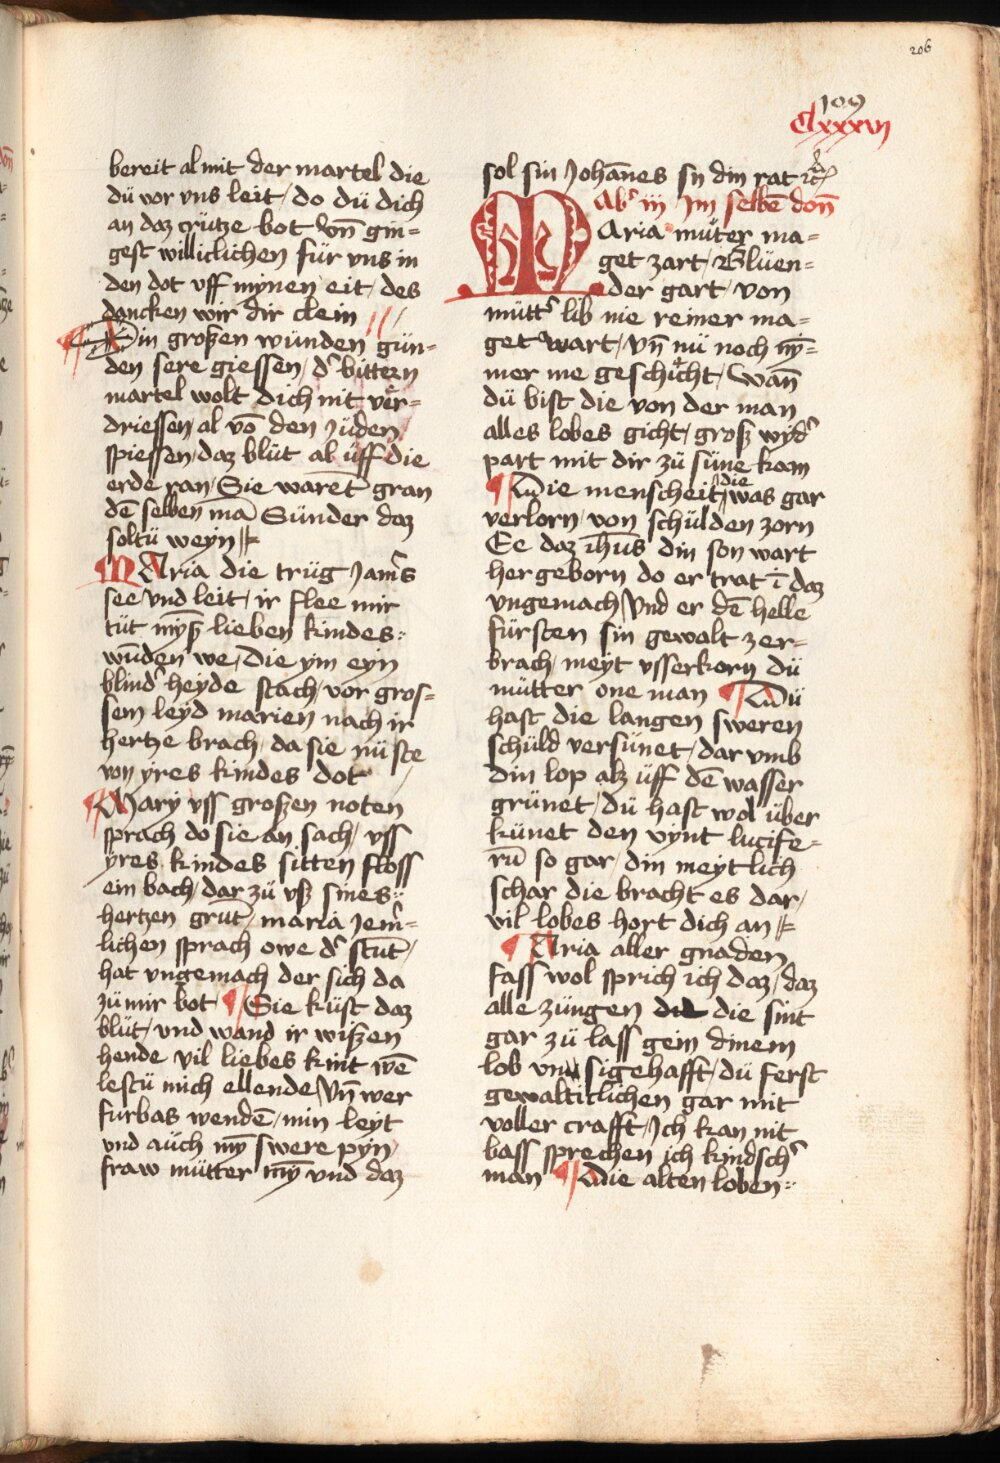 206
109
Clxxxvij
bereit al mit der martel die
dü vor vns leit / do dü dich
an daz crütze bot vn̄ gin=
gest williclichen für vns in
den dot vff mynen eit / des
dancken wir dir clein
Din großen wünden gün=
den sere giessen / dʼ bittern
martel wolt dich nit ver=
driessen al vō den Jüden
spiessen / daz blüt al üff die
erde ran / Sie waret gran
dē selben mā Sünder daz
soltü weyn
MAria die trüg Jamʼs
see vnd leit / ir flee mir
tüt myʼs lieben kindes
wūden we / Die ym eyn
blindʼ heyde stach / vor gros=
sem leyd marien nach ir
hertze brach / da sie nü ste
von yres kindes dot
Mary vss großen noten
sprach do sie an sach / vss
yres kindes sitten floss
ein bach / dar zü vß sines
hertzen grūt / maria Jemʼ=
lichen sprach owe dʼ stūt /
hat vngemach der sich da
zü mir bot ¶ Sie küst daz
blüt / vnd wand ir wißen
hende vil liebes kint wē
lestü mich ellende / vn̄ wer
furbas wendē / min leyt
vnd auch my̅ swere pyn /
fraw mütter my̅ vnd daz
sol sin Johānes sy din rat
Abʼ iij Jm selbē don
MAria müter ma=
get zart / Blüen=
der gart / von
müttʼ lib nie reiner ma=
get wart / vn̄ nü noch ny̅=
mer me geschicht / wan̄
dü bist die von der man
alles lobes gicht / groß wydʼ
part mit dir zü süne kam
¶ Die menscheit die was gar
verlorn / von schülden zorn
Ee daz ih̄us din son wart
her geborn do er trat ī daz
vngemach / Vnd er dē helle
fürsten sin gewalt zer=
brach / meyt vsserkorn dü
mütter one man ¶ Dü
hast die langen sweren
schüld versünet / dar vmb
din lop alz üff dē wasser
grünet / dü hast wol über
künet den vynt lucife=
rū so gar / din meytlich
schar die bracht es dar /
vil lobes hort dich an
¶ Aria aller gnaden
fass wol sprich ich daz / daz
alle züngen die sint
gar zü lass gein dinem
lob vn sigehafft / dü ferst
gewalticlichen gar mit
voller crafft / Ich kan nit
bass sprechen ich kindschʼ
man ¶ Die alten loben